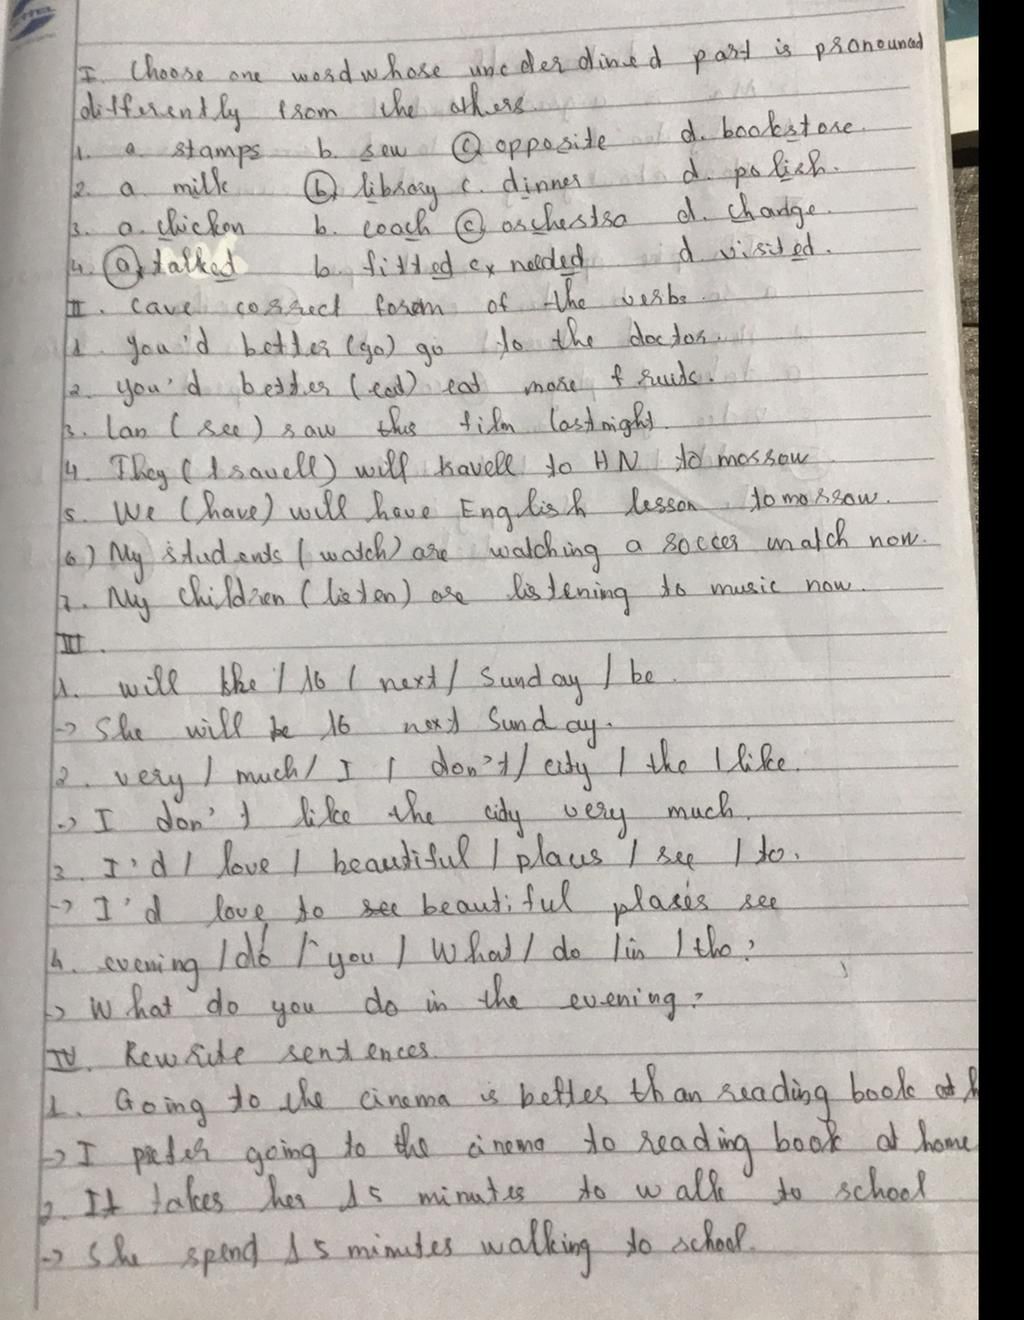 I. Choose one word whose underdined part is pronounced
differently from the others.
1. a. stamps b. sew c. opposite d. bookstore.
2. a. milk b. library c. dinner d. polish.
3. a. chicken b. coach c. orchestra d. change.
4. a. talked b. fitted c. needed d. visited.
II. Gave correct form of the verbs.
1. You'd better (go) go to the doctor.
2. you'd better (eat) eat more fruits.
3. Lan (see) saw this film last night.
4. They (travell) will travell to HN tomorrow
5. We (have) will have English lesson tomorrow.
6) My students (watch) are watching a soccer match now.
7. My children (listen) are listening to music now.
III.
1. will / she / 16 / next / Sunday / be.
-> She will be 16 next Sunday.
2. very / much / I / don't / city / the / like.
-> I don't like the city very much.
3. I'd / love / beautiful / places / see / to.
-> I'd love to see beautiful places see
4. evening / do / you / What / do / in / the?
-> What do you do in the evening?
IV. Rewrite sentences.
1. Going to the cinema is better than reading book at h
-> I prefer going to the cinema to reading book at home
2. It takes her 15 minutes to walk to school
-> She spend 15 minutes walking to school.